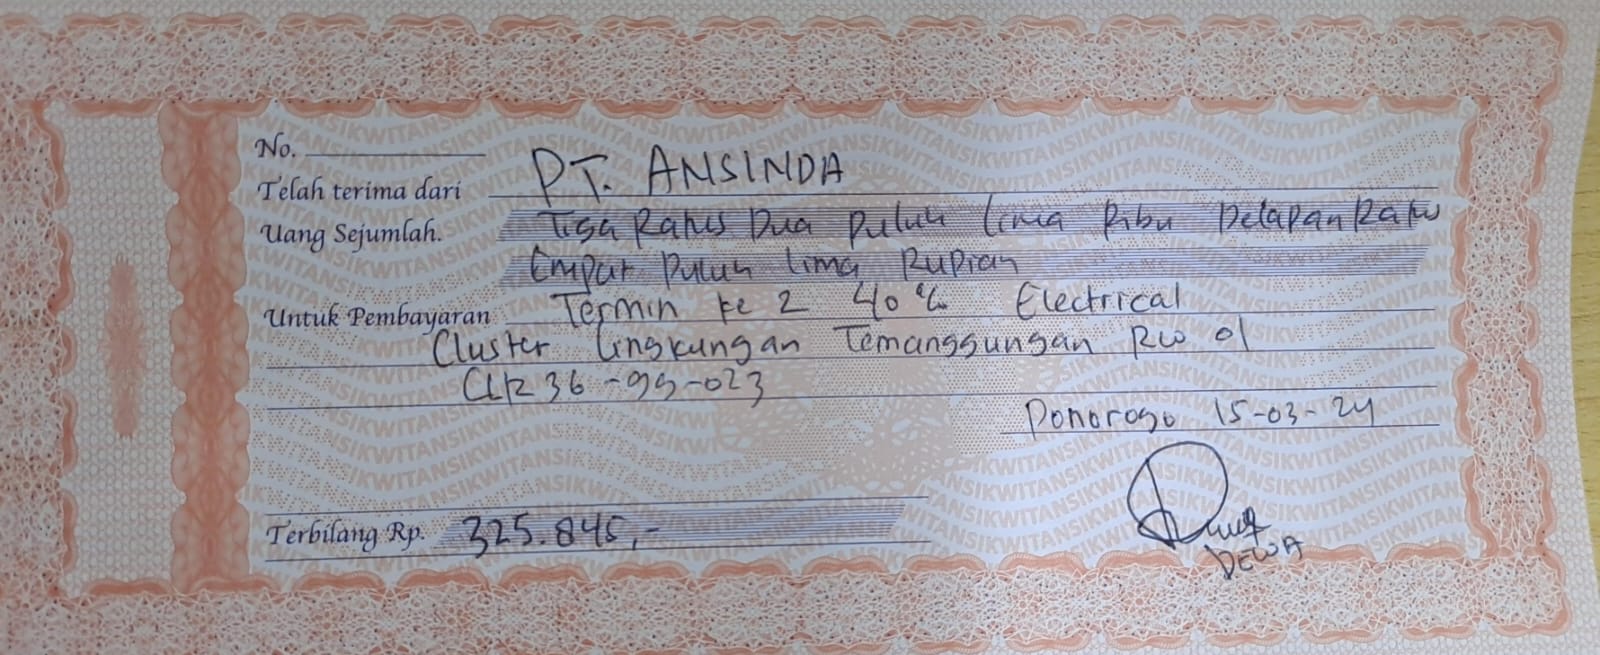 No.
Telah terima dari PT. ANSINDA
Uang Sejumlah. Tiga Ratus Dua Puluh Lima Ribu Delapan Ratus
Empat Puluh Lima Rupiah
Untuk Pembayaran Termin ke 2 40% Electrical
Cluster Lingkungan Temanggungan RW 01
CLK 36-99-023
Ponorogo 15-03-24
Terbilang Rp. 325.845,-
DEWA